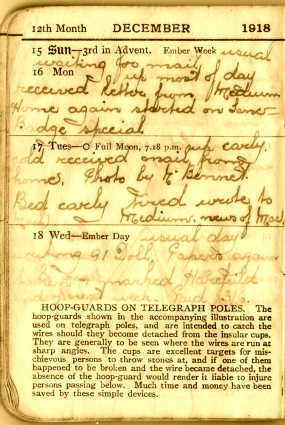 12th Month DECEMBER 1918
15 Sun—3rd in Advent. Ember Week usual
waiting for mail
16 Mon up most of day
received letter from Medium
Home again started on
Badge special
17 Tues—O Full Moon, 7.18 p.m. up early.
cold received mail from
home. Photo by Bennet.
Bed early tired wrote to
Medium. news of
18 Wed—Ember Day Casual day
HOOP-GUARDS ON TELEGRAPH POLES. The
hoop-guards shown in the accompanying illustration are
used on telegraph poles, and are intended to catch the
wires should they become detached from the insular cups.
They are generally to be seen where the wires are run at
sharp angles. The cups are excellent targets for mis-
chievous persons to throw stones at, and if one of them
happened to be broken and the wire became detached, the
absence of the hoop-guard would render it liable to injure
persons passing below. Much time and money have been
saved by these simple devices.